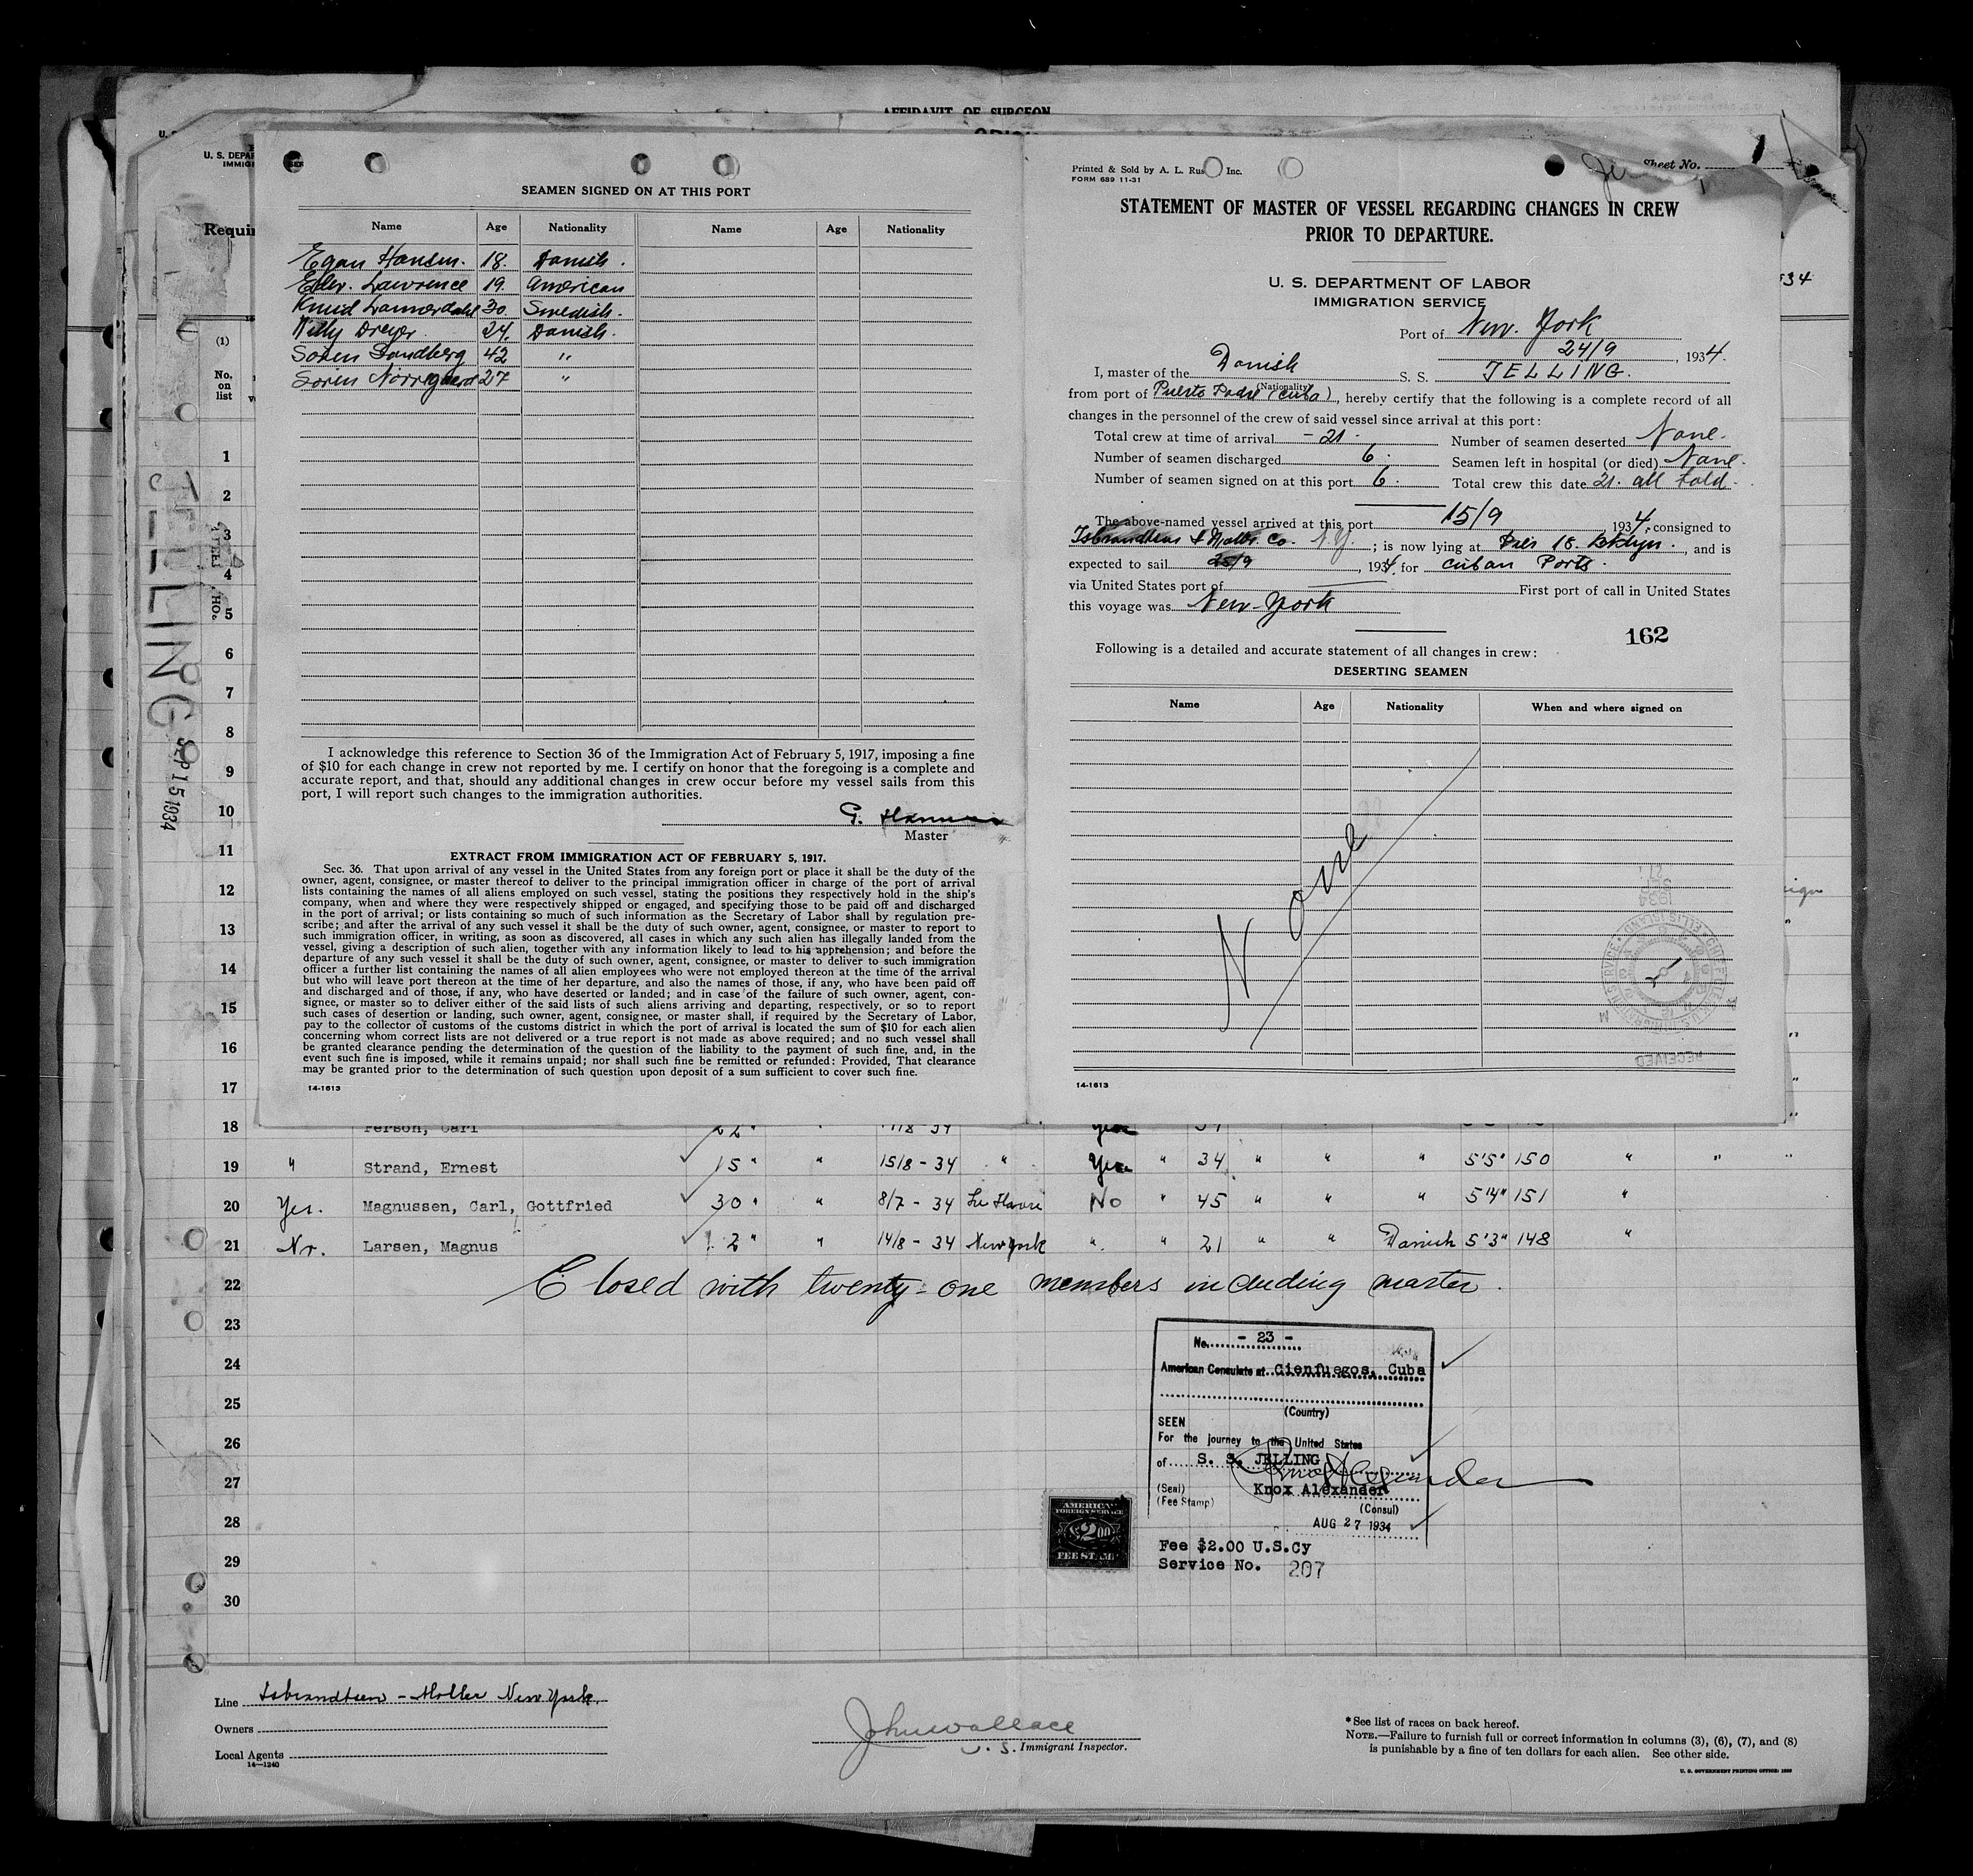 AFFIDAVIT OF SURGEON
SEAMEN SIGNED ON AT THIS PORT
Name Age Nationality Name Age Nationality
Egon Hansen. 18. Danish.
Lawrence 19. American
Knud 30. Swedish.
Willy Dreyer. 24. Danish.
Soren Sandberg 42 "
Soren 27 "
I acknowledge this reference to Section 36 of the Immigration Act of February 5, 1917, imposing a fine
of $10 for each change in crew not reported by me. I certify on honor that the foregoing is a complete and
accurate report, and that, should any additional changes in crew occur before my vessel sails from this
port, I will report such changes to the immigration authorities.
G.
Master
EXTRACT FROM IMMIGRATION ACT OF FEBRUARY 5, 1917.
Sec. 36. That upon arrival of any vessel in the United States from any foreign port or place it shall be the duty of the
owner, agent, consignee, or master thereof to deliver to the principal immigration officer in charge of the port of arrival
lists containing the names of all aliens employed on such vessel, stating the positions they respectively hold in the ship's
company, when and where they were respectively shipped or engaged, and specifying those to be paid off and discharged
in the port of arrival; or lists containing so much of such information as the Secretary of Labor shall by regulation pre-
scribe; and after the arrival of any such vessel it shall be the duty of such owner, agent, consignee, or master to report to
such immigration officer, in writing, as soon as discovered, all cases in which any such alien has illegally landed from the
vessel, giving a description of such alien, together with any information likely to lead to his apprehension; and before the
departure of any such vessel it shall be the duty of such owner, agent, consignee, or master to deliver to such immigration
officer a further list containing the names of all alien employees who were not employed thereon at the time of the arrival
but who will leave port thereon at the time of her departure, and also the names of those, if any, who have been paid off
and discharged and of those, if any, who have deserted or landed; and in case of the failure of such owner, agent, con-
signee, or master so to deliver either of the said lists of such aliens arriving and departing, respectively, or so to report
such cases of desertion or landing, such owner, agent, consignee, or master shall, if required by the Secretary of Labor,
pay to the collector of customs of the customs district in which the port of arrival is located the sum of $10 for each alien
concerning whom correct lists are not delivered or a true report is not made as above required; and no such vessel shall
be granted clearance pending the determination of the question of the liability to the payment of such fine, and, in the
event such fine is imposed, while it remains unpaid; nor shall such fine be remitted or refunded: Provided, That clearance
may be granted prior to the determination of such question upon deposit of a sum sufficient to cover such fine.
14-1613
Printed & Sold by A. L. Inc.
FORM 689 11-31
Sheet No. 1
STATEMENT OF MASTER OF VESSEL REGARDING CHANGES IN CREW
PRIOR TO DEPARTURE.
U. S. DEPARTMENT OF LABOR
IMMIGRATION SERVICE
Port of New York
24/9, 1934.
I, master of the Danish S. S. JELLING.
(Nationality)
from port of Puerto Padre (Cuba), hereby certify that the following is a complete record of all
changes in the personnel of the crew of said vessel since arrival at this port:
Total crew at time of arrival - 21 - Number of seamen deserted None.
Number of seamen discharged 6. Seamen left in hospital (or died) None.
Number of seamen signed on at this port 6. Total crew this date 21. all told.
The above-named vessel arrived at this port 15/9, 1934, consigned to
Isbrandtsen & Moller Co. N.Y.; is now lying at Pier 18. Bklyn., and is
expected to sail, 1934, for Cuban Ports.
via United States port of First port of call in United States
this voyage was New-York
162
Following is a detailed and accurate statement of all changes in crew:
DESERTING SEAMEN
Name Age Nationality When and where signed on
None
14-1613
JELLING
SEP 15 1934
(1)
No.
on
list
1
2
3
4
5
6
7
8
9
10
11
12
13
14
15
16
17
18 Person, Carl
19 " Strand, Ernest 15 " " 15/8 - 34 " Yes " 34 " " " 5'5" 150 " " "
20 Yes. Magnussen, Carl, Gottfried 30 " " 8/7 - 34 Le Havre No " 45 " " " 5'4" 151 "
21 No. Larsen, Magnus 2 " " 14/8 - 34 New York " " 21 " " Danish 5'3" 148 "
22 Closed with twenty-one members including master.
23
24
25
26
27
28
29
30
No. - 23 -
American Consulate at Cienfuegos, Cuba
(Country)
SEEN
For the journey to the United States
of S. S. JELLING
Knox Alexander
(Seal) Knox Alexander
(Fee Stamp) (Consul)
AUG 27 1934
Fee $2.00 U.S.Cy
Service No. 207
AMERICAN
FOREIGN SERVICE
$2.00
FEE STAMP
Line Isbrandtsen - Moller New York.
Owners
Local Agents
14-1240
John Wallace
U. S. Immigrant Inspector.
*See list of races on back hereof.
NOTE.—Failure to furnish full or correct information in columns (3), (6), (7), and (8)
is punishable by a fine of ten dollars for each alien. See other side.